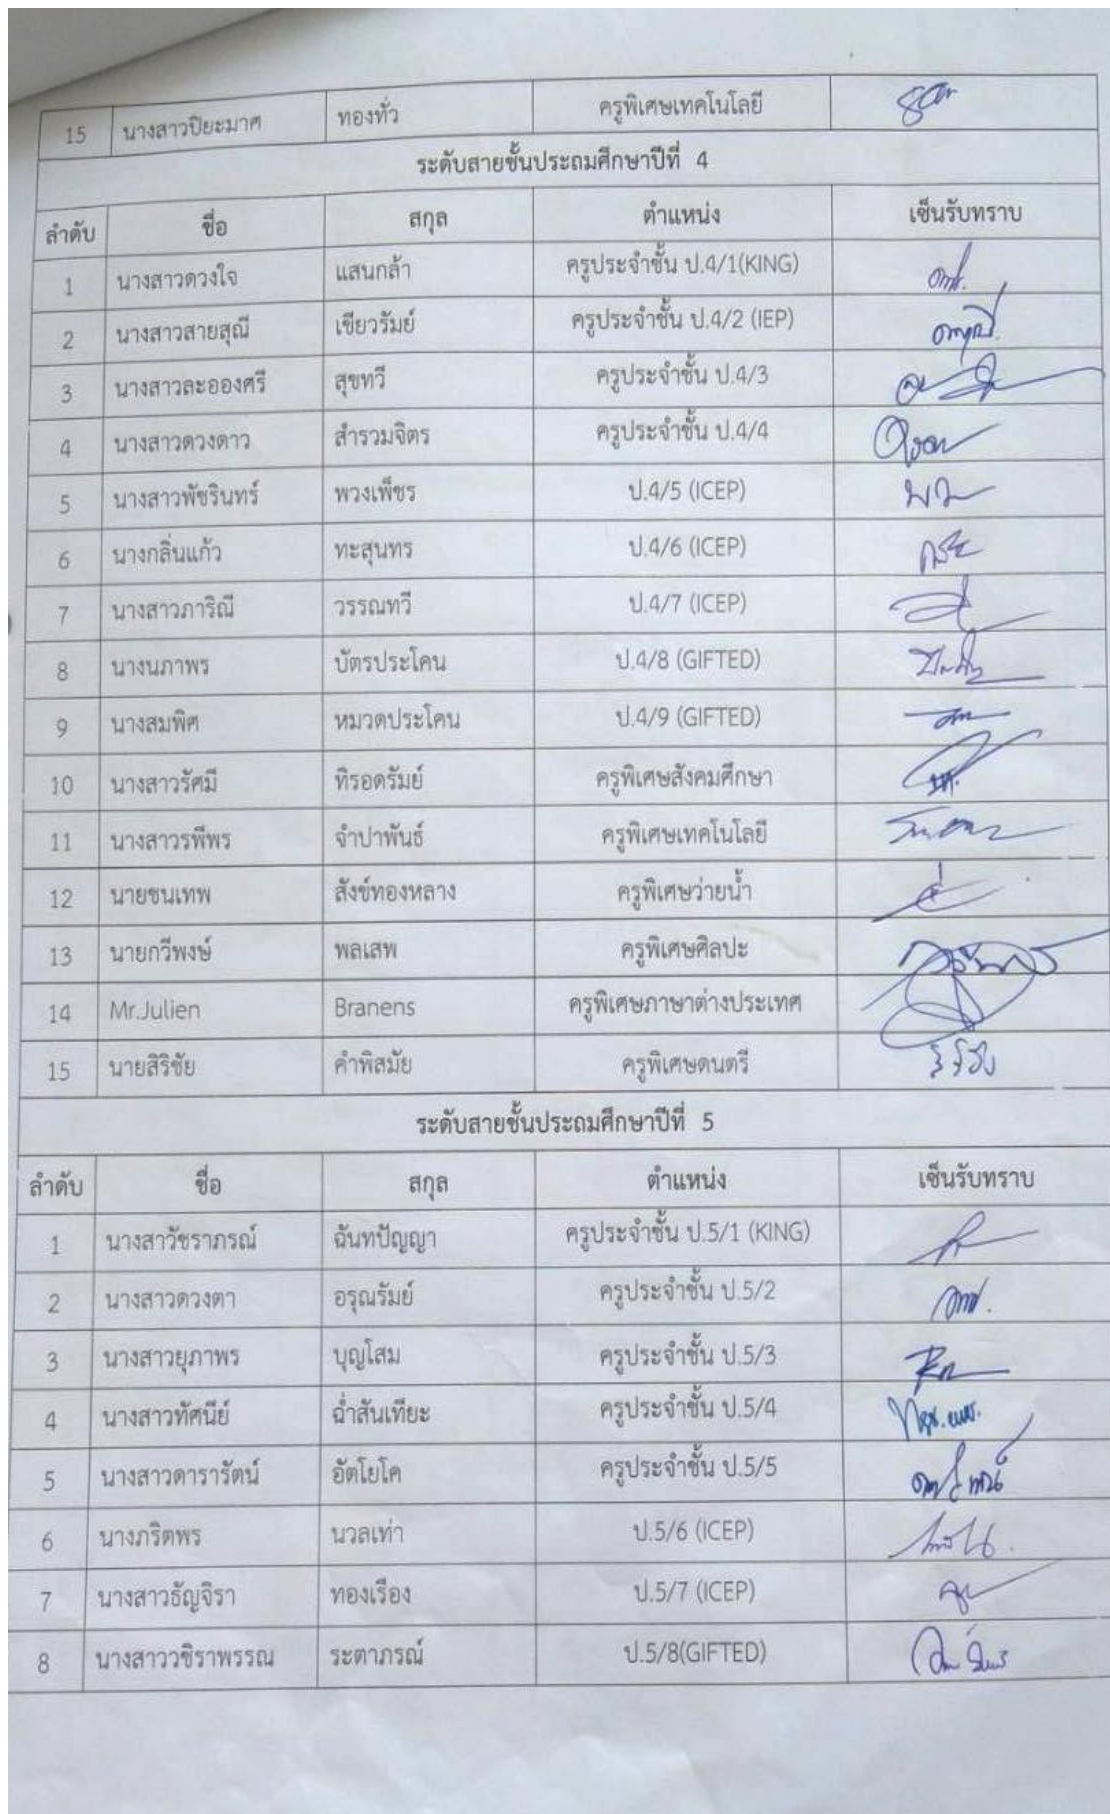 15 นางสาวปิยะมาศ ทองทั่ว ครูพิเศษเทคโนโลยี
ระดับสายชั้นประถมศึกษาปีที่ 4
ลำดับ ชื่อ สกุล ตำแหน่ง เซ็นรับทราบ
1 นางสาวดวงใจ แสนกล้า ครูประจำชั้น ป.4/1(KING)
2 นางสาวสายสุณี เขียวรัมย์ ครูประจำชั้น ป.4/2 (IEP)
3 นางสาวละอองศรี สุขทวี ครูประจำชั้น ป.4/3
4 นางสาวดวงดาว สำรวมจิตร ครูประจำชั้น ป.4/4
5 นางสาวพัชรินทร์ พวงเพ็ชร ป.4/5 (ICEP)
6 นางกลิ่นแก้ว ทะสุนทร ป.4/6 (ICEP)
7 นางสาวภาริณี วรรณทวี ป.4/7 (ICEP)
8 นางนภาพร บัตรประโคน ป.4/8 (GIFTED)
9 นางสมพิศ หมวดประโคน ป.4/9 (GIFTED)
10 นางสาวรัศมี ทิรอดรัมย์ ครูพิเศษสังคมศึกษา
11 นางสาวรพีพร จำปาพันธ์ ครูพิเศษเทคโนโลยี
12 นายชนเทพ สังข์ทองหลาง ครูพิเศษว่ายน้ำ
13 นายกวีพงษ์ พลเสพ ครูพิเศษศิลปะ
14 Mr.Julien Branens ครูพิเศษภาษาต่างประเทศ
15 นายสิริชัย คำพิสมัย ครูพิเศษดนตรี
ระดับสายชั้นประถมศึกษาปีที่ 5
ลำดับ ชื่อ สกุล ตำแหน่ง เซ็นรับทราบ
1 นางสาวัชราภรณ์ ฉันทปัญญา ครูประจำชั้น ป.5/1 (KING)
2 นางสาวดวงตา อรุณรัมย์ ครูประจำชั้น ป.5/2
3 นางสาวยุภาพร บุญโสม ครูประจำชั้น ป.5/3
4 นางสาวทัศนีย์ ฉ่ำสันเทียะ ครูประจำชั้น ป.5/4
5 นางสาวดารารัตน์ อัตโยโค ครูประจำชั้น ป.5/5
6 นางภริตพร นวลเท่า ป.5/6 (ICEP)
7 นางสาวธัญจิรา ทองเรือง ป.5/7 (ICEP)
8 นางสาววชิราพรรณ ระตาภรณ์ ป.5/8(GIFTED)